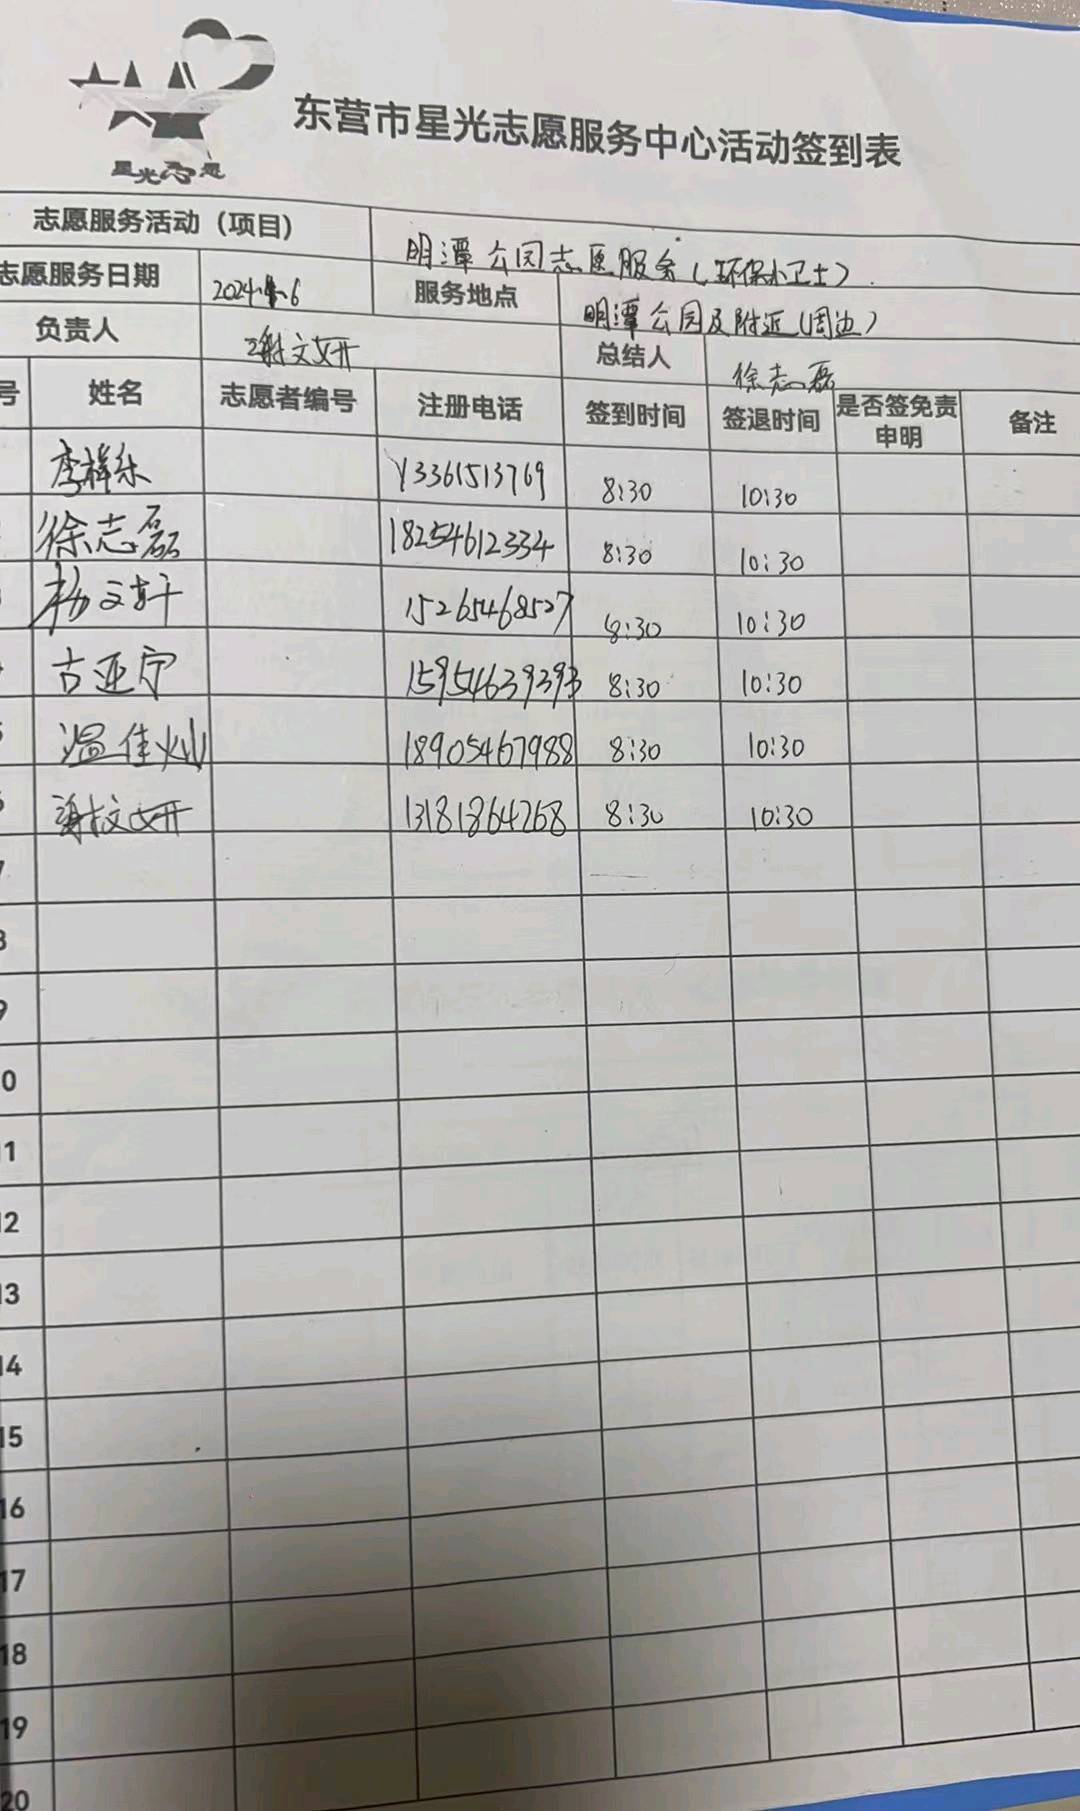 星光志愿
东营市星光志愿服务中心活动签到表
志愿服务活动（项目） 明潭公园志愿服务（环保小卫士）
志愿服务日期 服务地点 明潭公园及附近（周边）
负责人 谢文妍 总结人 徐志磊
号 姓名 志愿者编号 注册电话 签到时间 签退时间 是否签免责申明 备注
李祥东 13361513769 8:30 10:30
徐志磊 18254612334 8:30 10:30
杨文轩 15265468527 8:30 10:30
古亚宁 15954639393 8:30 10:30
温佳灿 18905467988 8:30 10:30
谢文妍 13181864268 8:30 10:30
7
8
9
10
11
12
13
14
15
16
17
18
19
20